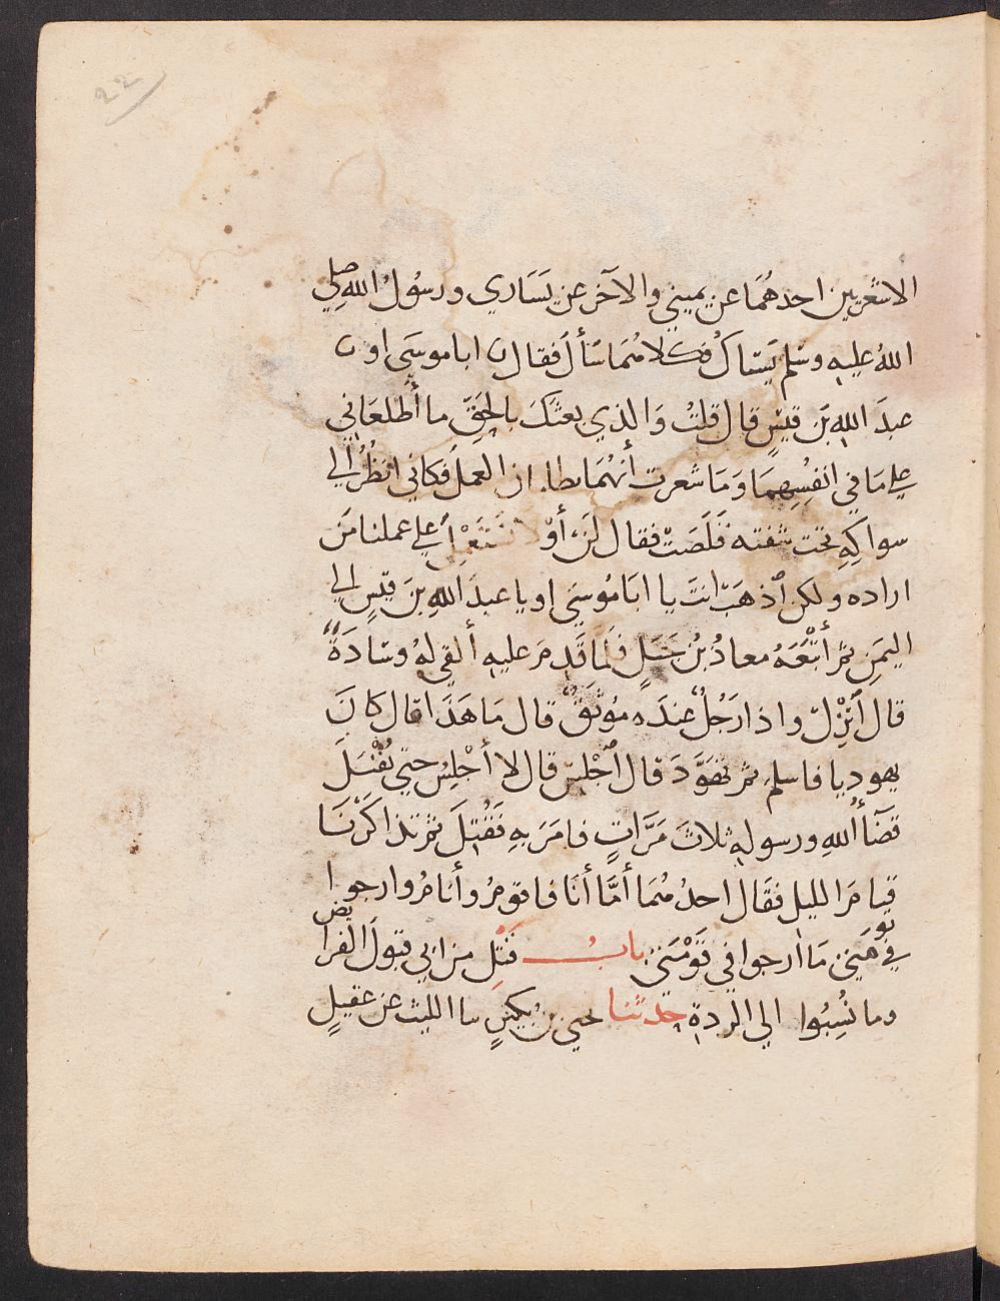 22
الاشعريين احدهُمَا عن يميني والآخر عن يَسَاري ورسُولُ الله صلي
اللهُ عليهِ وسَلم يَستاكُ فكلاهُمَا سَأَلَ فقال يا ابا موسَى او يا
عبدَ اللهِ بنَ قيسٍ قال قلتُ وَالذي بعثكَ بالحَقِّ ما أَطلعَاني
علي مَا في انفُسِهِمَا وَمَا شعرت أنهُمَا يطلبان العملَ فكاني انظُرُ الي
سواكِهِ تحت شفته قَلَصَتْ فقال لَنْ أوْ لا نَسْتَعْمِلُ علي عملنا مَن
اراده ولكن اذهَبْ انتَ يا ابَا مُوسَي او يا عبدَ اللهِ بنَ قيسٍ الي
اليَمَنِ ثم أتْبَعَهُ معاذُ بنُ جَبَلٍ فلما قَدِمَ عليهِ ألقي لهُ وسَادَةً
قال ٱنْزِلْ واذا رَجُلٌ عندَه مُوثَقٌ قال مَا هَذَا قال كانَ
يهوديا فاسلم ثم تهَوَّدَ قال ٱجْلِسْ قال لا أَجْلِسُ حتي يُقْتَلَ
قضَآءُ اللهِ ورسولهِ ثلاثَ مَرَّاتٍ فامَرَ بهِ فَقُتِلَ ثم تذاكَرْنَا
قيامَ الليلِ فقَال احدُهُمَا أمَّا أنَا فاقومُ وأنامُ وارجوا
في نومَتي مَا ارجوا في قَوْمَتي بابُ قتلِ من ابي قبولَ الفرائض
وما نُسِبُوا الي الردة حدثنا يحيي بن بُكيرٍ نا الليث عن عقيلٍ